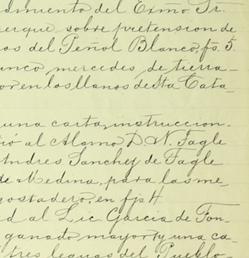 dimiento del Exmo Sr.
erque, sobre pretension de
as del Peñol Blanco, fs. 5.
unco mercedes de tierra
or en los llanos desta Cata
una carta, instruccion
ió al Alamo D. N. Fagle
Andres Sanchez de Fagle
de Medina, para las me
gostadero, en fs 4
d al Lic Garcia de Fon
ganado mayor, y una ca
tres leguas del Pueblo